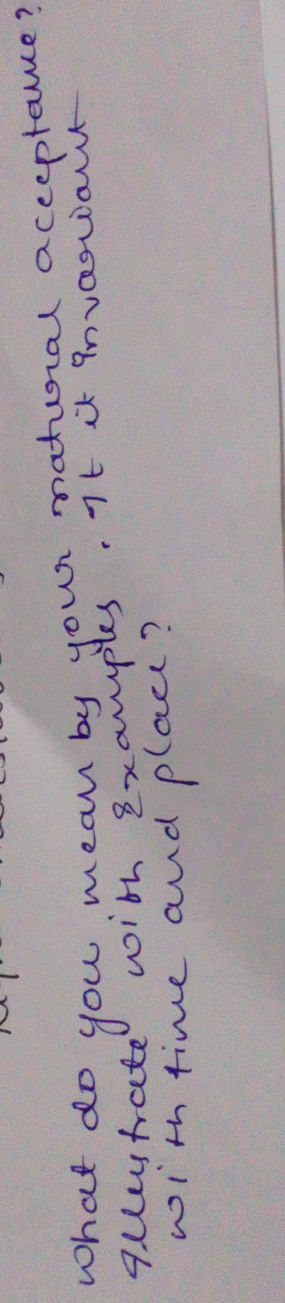 What do you mean by your natural acceptance?
Illustrate with Examples. It it Invariant
with time and place?